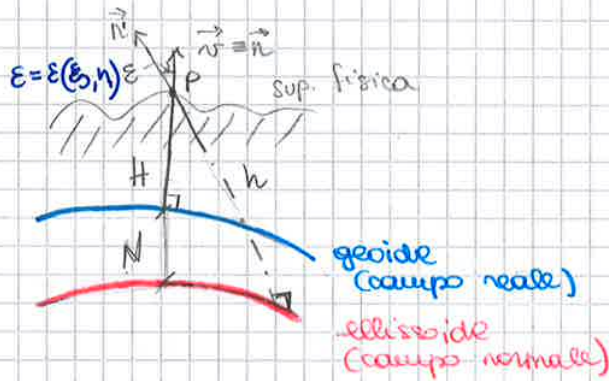 n⃗'
v⃗ ≡ n⃗
ε = ε(ξ,η)
ε
P
sup. fisica
H
h
N
geoide
(campo reale)
ellissoide
(campo normale)